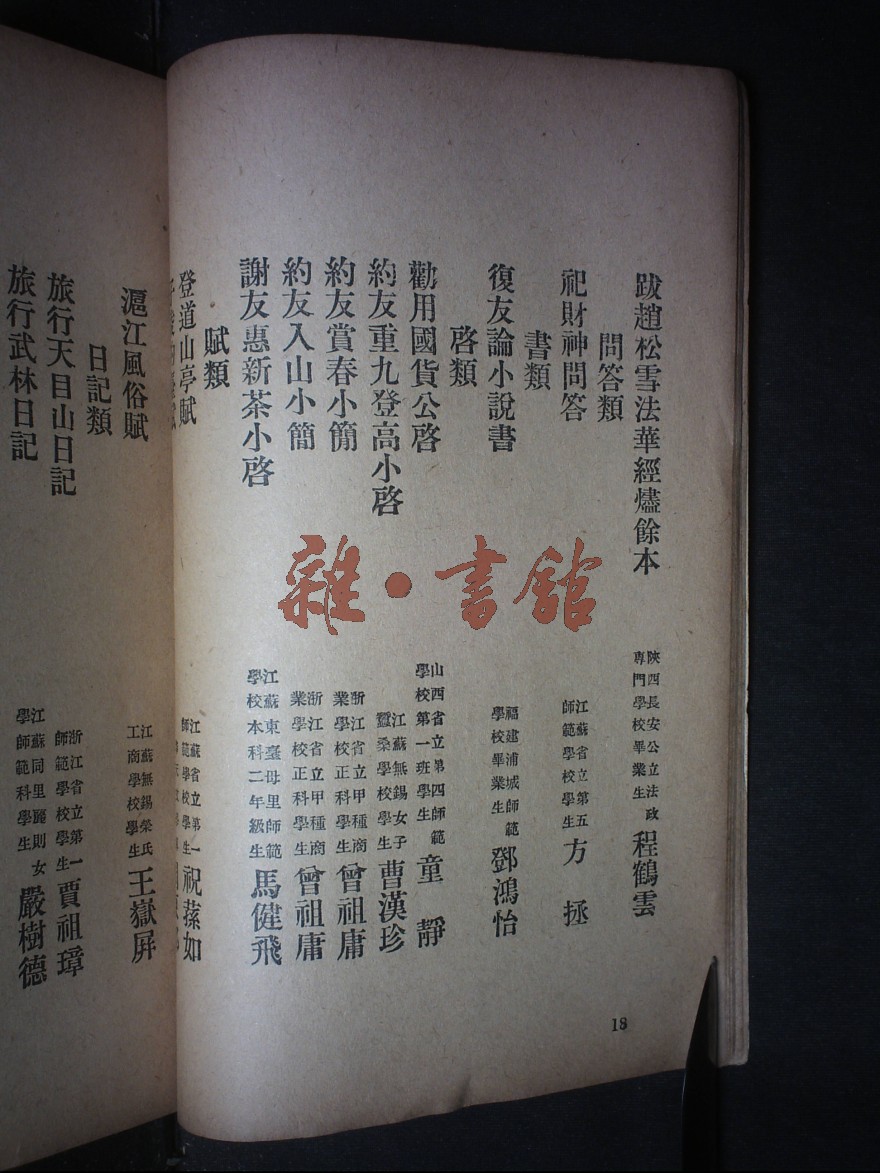 跋趙松雪法華經燼餘本 陝西長安公立法政專門學校畢業生 程鶴雲
問答類
祀財神問答 江蘇省立第五師範學校學生 方拯
書類
復友論小說書 福建浦城師範學校畢業生 鄧鴻怡
啓類
勸用國貨公啓 山西省立第四師範學校第一班學生 童靜
約友重九登高小啓 江蘇無錫女子蠶桑學校學生 曹漢珍
約友賞春小簡 浙江省立甲種商業學校正科學生 曾祖庸
約友入山小簡 浙江省立甲種商業學校正科學生 曾祖庸
謝友惠新茶小啓 江蘇東臺母里師範學校本科二年級生 馬健飛
賦類
登道山亭賦 江蘇省立第一師範學校學生 祝蓀如
滬江風俗賦 江蘇無錫榮氏工商學校學生 王嶽屏
日記類
旅行天目山日記 浙江省立第一師範學校學生 賈祖璋
旅行武林日記 江蘇同里麗則女學師範科學生 嚴樹德
18
雜·書館